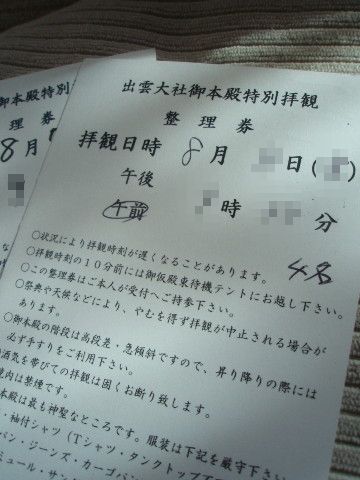 御本殿特別
理券
8月
出雲大社御本殿特別拝観
整理券
拝観日時 8月 日(
午後
午前 時 分
4名
○状況により拝観時刻が遅くなることがあります。
○拝観時刻の10分前には御仮殿東待機テントにお越し下さい。
○この整理券はご本人が受付へご持参下さい。
○祭典や天候などにより、やむを得ず拝観が中止される場合が
あります。
○御本殿の階段は高段差・急傾斜ですので、昇り降りの際には
必ず手すりをご利用下さい。
酒気を帯びての拝観は固くお断り致します。
境内は禁煙です。
本殿は最も神聖なところです。服装は下記を厳守下さい
・袖付シャツ(Tシャツ・タンクトップ
パン・ジーンズ・カーゴパン
ミュール・サン